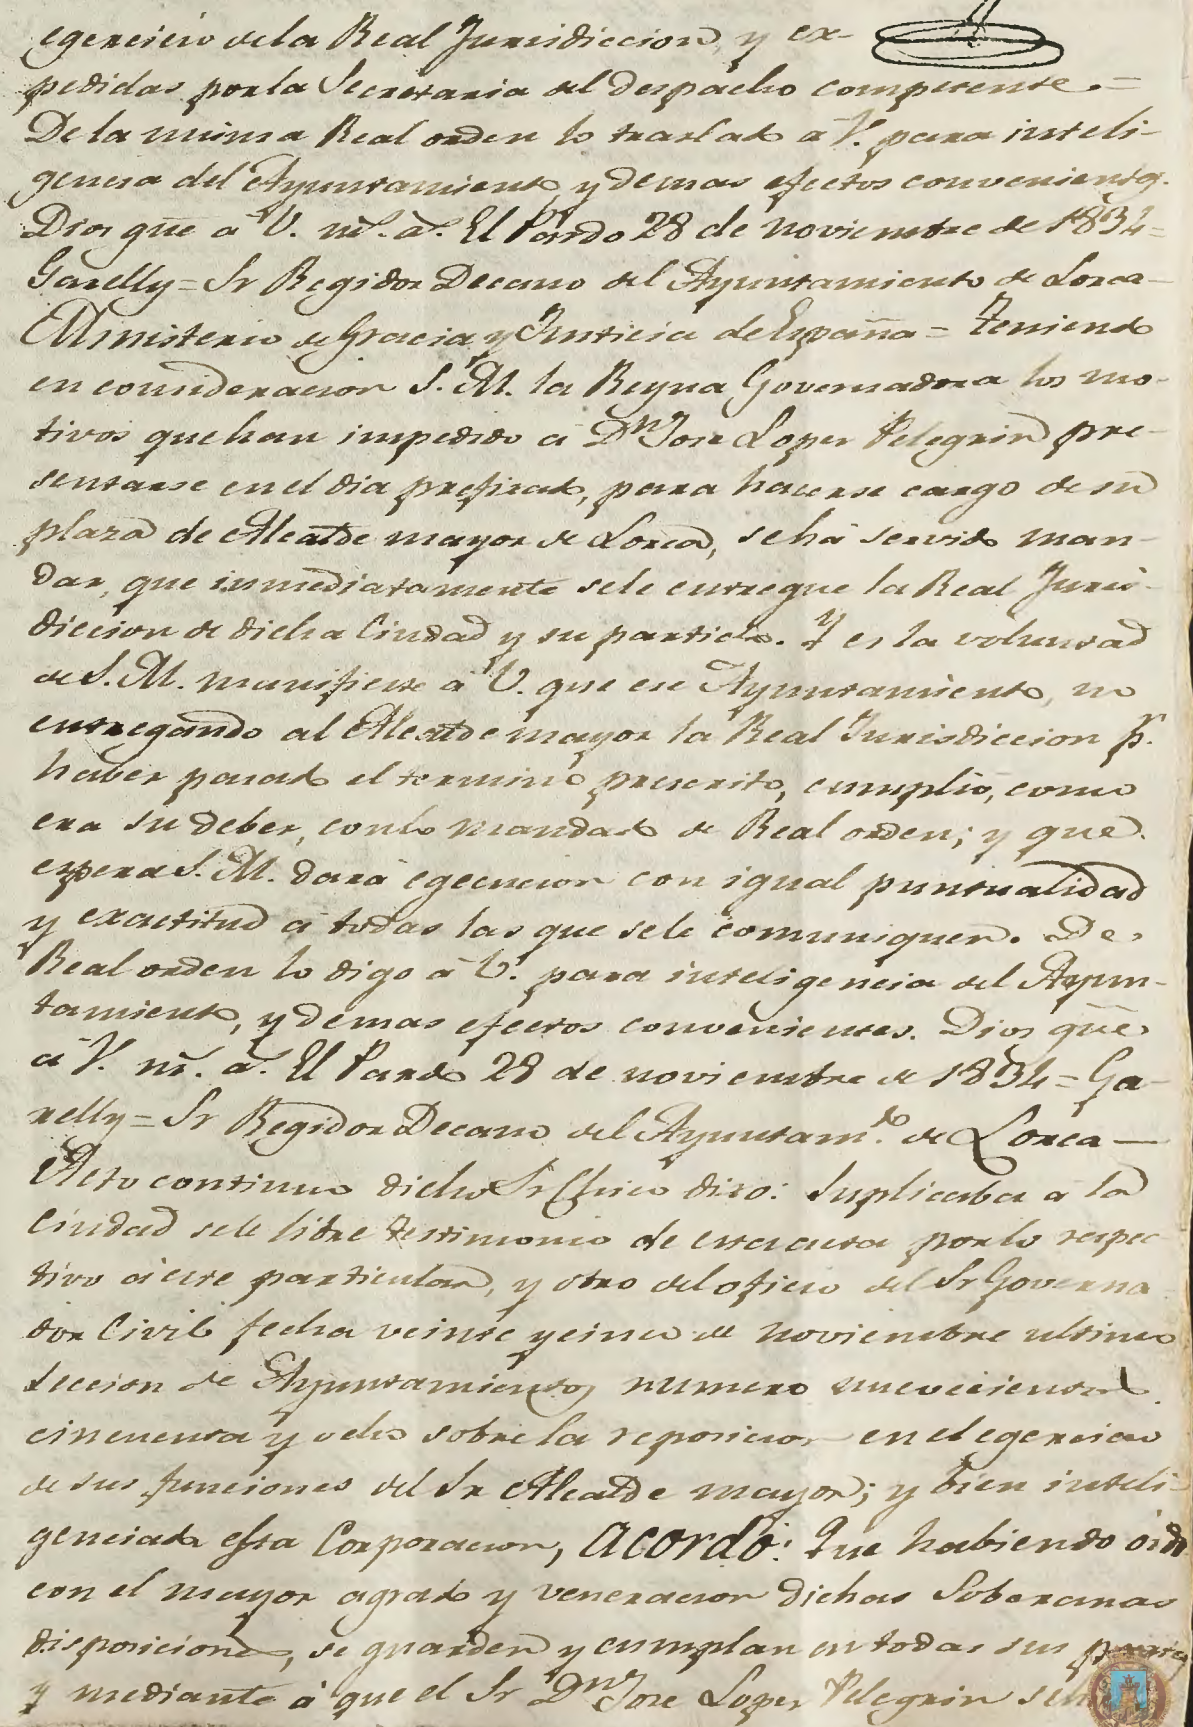 egercicio dela Real Jurisdiccion, y ex-
pedidas porla Secretaria del despacho competente.=
De la misma Real orden lo traslado á V. para inteli-
gencia del Ayuntamiento, y demas efectos convenientes.
Dios gũe á V. m.s a.s El Pardo 28 de noviembre de 1834=
Garelly=Sr Regidor Decano del Ayuntamiento de Lorca-
Ministerio de Gracia y Justicia de España= Teniendo
en consideracion S. M. la Reyna Governadora los mo-
tivos que han impedido á Dn Jose Lopez Pelegrin pre-
sentarse en el dia prefixado, para hacerse cargo de su
plaza de Alcalde mayor de Lorca, se há servido man-
dar, que inmediatamente sele entregue la Real Juris-
diccion de dicha Ciudad y su partido. Y es la voluntad
de S. M. manifieste á V. que ese Ayuntamiento, no
entregando al Alcalde mayor la Real Jurisdiccion p.r
haber pasado el termino prescrito, cumplió, como
era su deber, conlo mandado de Real orden; y que
espera S. M. dará egecucion con igual puntualidad
y exactitud á todas las que sele comuniquen. De
Real orden lo digo á V. para inteligencia del Ayun-
tamiento, y demas efectos convenientes. Dios gũe
á V. m.s a.s El Pardo 28 de noviembre de 1834=Ga-
relly=Sr Regidor Decano del Ayuntam.to de Lorca—
Acto continuo dicho Sr Chico dixo: Suplicaba á la
Ciudad sele libre testimonio de esta acta porlo respec-
tivo á este particular, y otro del oficio del Sr Governa
dor Civil fecha veinte y cinco de noviembre ultimo
Seccion de Ayuntamientos numero nuevecientos
cincuenta y ocho sobre la reposicion en el egercicio
de sus funciones del Sr Alcalde mayor; y bien inteli-
genciada esta Corporacion, acordó: Que habiendo oido
con el mayor agrado y veneracion dichas Soberanas
disposiciones, se guarden y cumplan en todas sus partes
y mediante á que el Sr Dn Jose Lopez Pelegrin